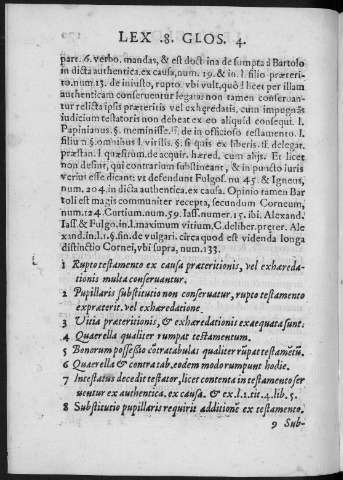 LEX .8. GLOS. 4.
part. 6. verbo. mandas, & est doctrina desumpta à Bartolo
in dicta authentica. ex causa, num. 19. & in l. filio præteri-
to. num. 13. de iniusto, rupto. vbi vult, quò licet per illam
authenticam conseruentur legata: non tamen conseruan-
tur relicta ipsis præteritis vel exhæredatis, cum impugnãs
iudicium testatoris non debeat ex eo aliquid consequi. l.
Papinianus §. meminisse. ff. de in officioso testamento. l.
filium §. omnibus l. virilis. §. si quis ex liberis. ff. delegat.
præstan. l quæsitum. de acquir. hæred. cum alijs. Et licet
non desint, qui contrarium substineant, & in puncto iuris
verius esse dicant: vt defendunt Fulgos. nu 45. & Igneus,
num. 204. in dicta authentica. ex causa. Opinio tamen Bar
toli est magis communiter recepta, secundum Corneum,
num. 124. Curtium. num. 59. Iass. numer. 15. ibi. Alexand.
Iass. & Fulgo. in l. maximum vitium, C. de liber. preter. Ale
xand. in l. 1. §. fin. de vulgari. circa quod est videnda longa
distinctio Cornei, vbi supra, num. 133.
1 Rupto testamento ex causa præteritionis, vel exhæreda-
tionis multa conseruantur.
2 Pupillaris substitutio non conseruatur, rupto testamento
ex præterit. vel exhæredatione.
3 Vitia præteritionis, & exhæredationis exæquata sunt.
4 Quærella qualiter rumpat testamentum.
5 Bonorum possessio cõtratabulas qualiter rupat testamẽtũ.
6 Quærella & contra tab. eodem modo rumpunt hodie.
7 Intestatus decedit testator, licet contenta in testamento ser
uentur ex authentica. ex causa. & ex l. 1. tit. 4. lib. 5.
8 Substitutio pupillaris requirit additionẽ ex testamento.
9 Sub-